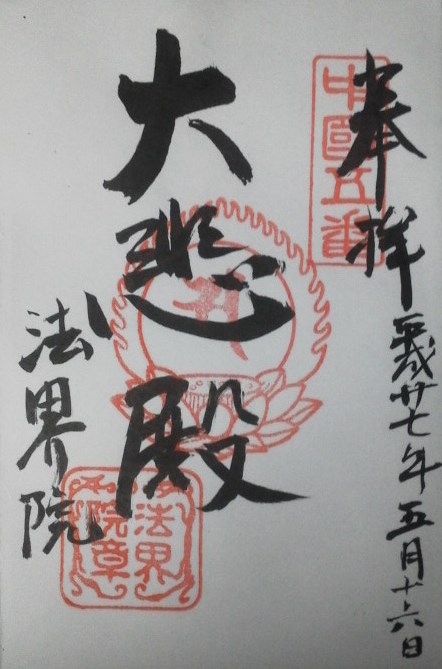 奉拝
平成廿七年五月十六日
中國五番
大悲殿
法界院
法界
院章